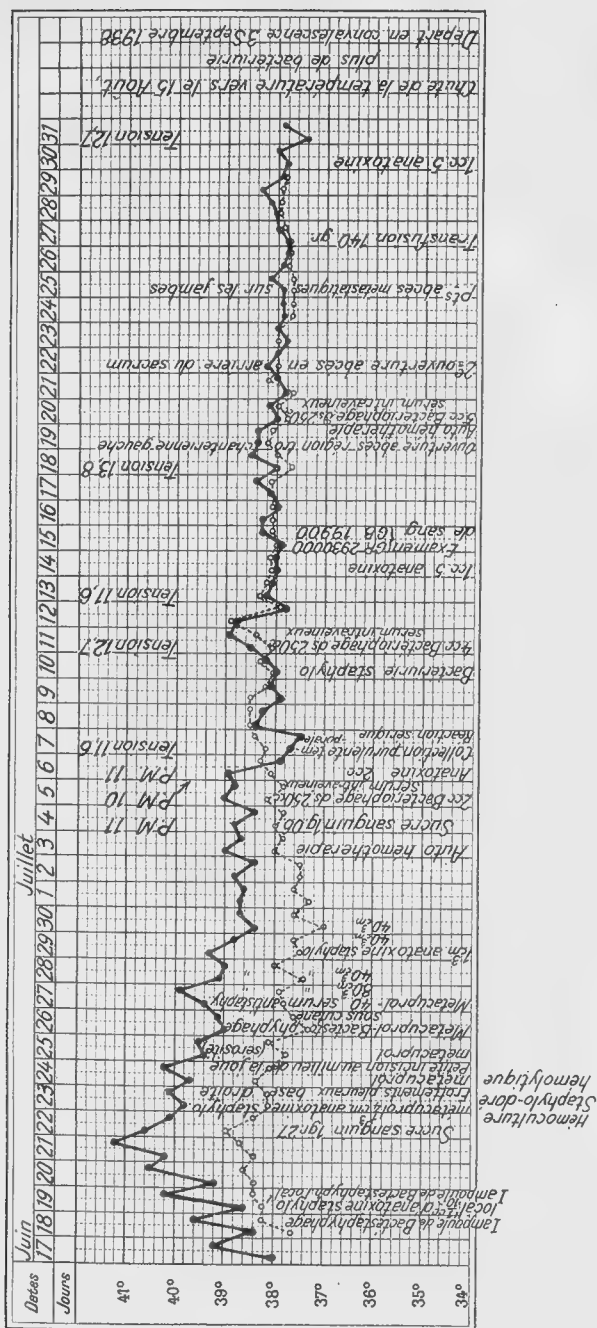 Dates
Jours
Juin
Juillet
17 18 19 20 21 22 23 24 25 26 27 28 29 30 1 2 3 4 5 6 7 8 9 10 11 12 13 14 15 16 17 18 19 20 21 22 23 24 25 26 27 28 29 30 31
41°
40°
39°
38°
37°
36°
35°
34°
1ampoule de Bactéstaphyphage
local
1ampoule de Bactestaphyph. local
Sucre sanguin 1gr.27
Hémoculture
Staphylo-doré
hémolytique
Frottements pleuraux base droite
metacuprol
Petite incision au milieu de la joue
(sérosité)
metacuprol
Métacuprol-Bactestaphyphage
sous cutané
Métacuprol- 40 serum antistaphy
80 cm³ "
40 cm³ "
1cm³ anatoxine staphylo
40 cm³
40 cm³
Auto hémothérapie
Sucre sanguin 1g,06
P.M 11
P.M 10
P.M 11
2cc Bactériophage ds 250cc
sérum intraveineux
Anatoxine 2cc
Collection purulente tem-
-porale
Réaction sérique
Tension 11,6
Bacteriurie staphylo
4cc Bactériophage ds 250cc
serum intraveineux
Tension 12,7
Tension 11,6
1cc 5 anatoxine
Examen GR 2930000
de sang GB 19900
Tension 13,8
Ouverture abcès région trochantérienne gauche
Auto hémothérapie
5cc Bactériophage ds 250cc
sérum intraveineux
2e ouverture abcès en arrière du sacrum
pts abcès métastatiques sur les jambes
Transfusion 140 gr
1cc 5 anatoxine
Tension 12,7
Chute de la température vers le 15 Août,
plus de bactériurie
Départ en convalescence 3 Septembre 1938